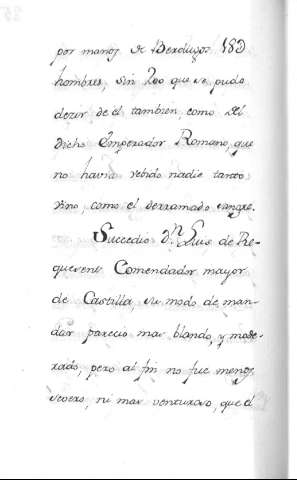 por manos de Verdugos 18D
hombres, sin que se pudo
dezir de el tambien como del
dicho Emperador Romano, que
no havia vebido nadie tanto
vino, como el derramado sangre.
Succedio Dn. Luis de Re-
quesens Comendador mayor
de Castilla, su modo de man-
dar parecio mas blando, y mode-
rado, pero al fin no fue menos
severo, ni mas venturoso, que el